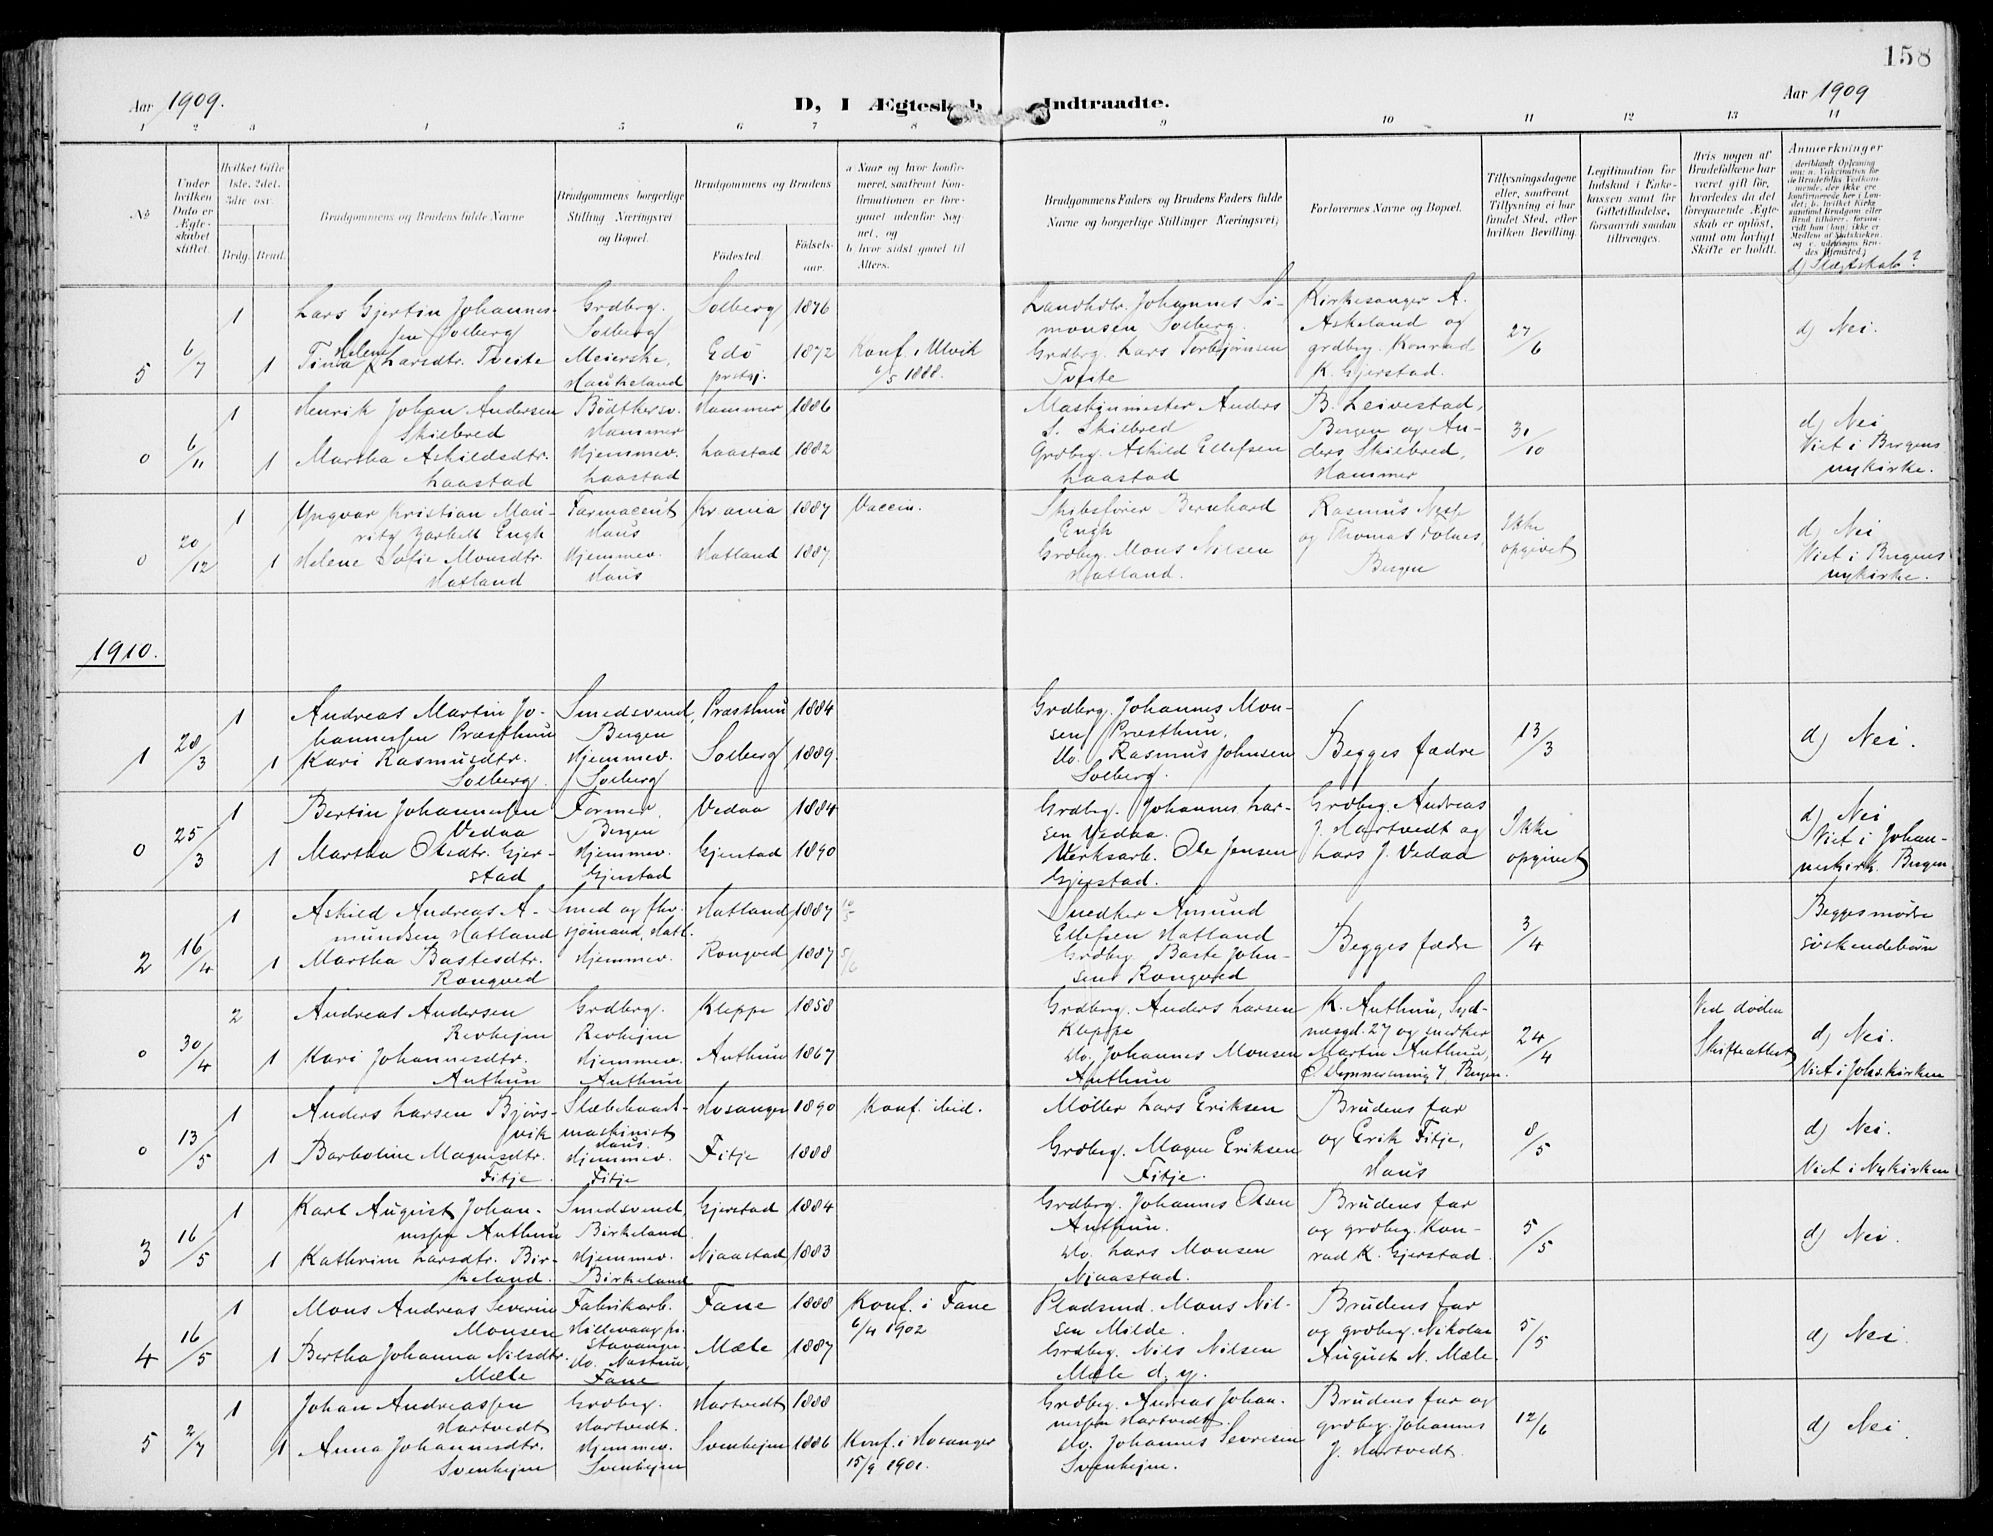 158
Aar 1909.
D, I Ægteskab Indtraadte.
Aar 1909
1 2 3 4 5 6 7 8 9 10 11 12 13 14
No
Under hvilken Dato er Ægteskabet stiftet.
Hvilket Gifte 1ste, 2det, 3die osv.
Brdg. Brud.
Brudgommens og Brudens fulde Navne
Brudgommens borgerlige Stilling Næringsvei og Bopæl.
Brudgommens og Brudens
Fødested
Fødselsaar.
a Naar og hvor konfirmeret, saafremt Konfirmationen er foregaaet udenfor Sognet, og
b hvor sidst gaaet til Alters.
Brudgommens Faders og Brudens Faders fulde Navne og borgerlige Stillinger Næringsvei;
Forlovernes Navne og Bopæl.
Tillysningsdagene eller, saafremt Tillysning ei har fundet Sted, efter hvilken Bevilling.
Legitimation for Indskud i Enkekassen samt for Giftetilladelse, forsaavidt saadan tiltrænges.
Hvis nogen af Brudefolkene har været gift før, hvorledes da det foregaaende Ægteskab er opløst, samt om lovligt Skifte er holdt.
Anmerkninger
d) Slægtskab?
5 6/7 1 Lars Gjertin Johannessen Solberg Grdbrg. Solberg Solberg 1876
1 Tina Helene Larsdtr. Tveite Meierske, Haukeland Edø prstgj. 1872 Konf. Ulvik 6/5 1888.
Landhdtr. Johannes Simonsen Solberg.
Grdbrg. Lars Torbjørnsen Tveite
Kirkesanger A. Askeland og grdbrg. Konrad K. Gjerstad.
27/6
d) Nei.
0 6/11 1 Henrik Johan Andersen Skilbred Bødtkersv. Hammer Hammer 1886
1 Martha Askildsdtr. Laastad Hjemmev. Laastad Laastad 1882
Maskinmester Anders S. Skilbred
Grdbrg. Askild Ellefsen Laastad
B. Leivestad, Bergen og Anders Skilbred, Hammer
31/10
d) Nei Viet i Bergens nykirke.
0 20/12 1 Yngvar Kristian Mauritz Engh Farmaceut Haus Kr ania 1887 Vaccin.
1 Helene Sofie Monsdtr. Hatland Hjemmev. Haus Hatland 1887
Skibsfører Bernhard Engh
Grdbrg. Mons Nilsen Hatland.
Rasmus og Thomas Bergen
Ikke opgivet
d) Nei Viet i Bergens nykirke.
1910.
1 28/3 1 Andreas Martin Johannessen Præsthun Smedsvend, Bergen Præsthun 1884
1 Kari Rasmusdtr. Solberg. Hjemmev. Solberg Solberg 1889.
Grdbrg. Johannes Monsen Præsthun.
do. Rasmus Johnsen Solberg.
Begges fædre
13/3
d) Nei.
0 25/3 1 Bertin Johannessen Vedaa Former, Bergen Vedaa 1884
1 Martha Olsdtr. Gjerstad Hjemmev. Gjerstad Gjerstad 1890
Grdbrg. Johannes Larsen Vedaa.
Verksarb. Ole Jensen Gjerstad.
Grdbrg. Andreas J. Hartvedt og Lars J. Vedaa
Ikke opgivet
d) Nei Viet i Johanneskirk. Bergen
2 16/4 1 Askild Andreas Amundsen Hatland Smed og fhv. sjømand, Hatl. Hatland 1887
1 Martha Bastesdtr. Rongved Hjemmev. Rongved 1887
Snedker Amund Ellefsen Hatland
Grdbrg. Baste Johnsen Rongved
Begges fædre
3/4
Begges mødre søskendebørn
0 30/4 2 Andreas Andersen Revhejen Grdbrg. Revhejen Kleppe 1858
1 Kari Johannesdtr. Anthun Hjemmev. Anthun Anthun 1867
Grdbrg. Anders Larsen Kleppe
do. Johannes Monsen Anthun
K. Anthun, Sydnæsgd. 27 og snedker Martin Anthun, 7, Bergen.
24/4
Ved døden Skifteattest
d) Nei. Viet i Johs.kirken
0 13/5 1 Anders Larsen Bjørsvik Slæbebaadmaskinist Haus. Hosanger 1890 Konf. ibid.
1 Barboline Magnesdtr. Fitje. Hjemmev. Fitje Fitje 1888
Møller Lars Eriksen
Grdbrg. Magne Eriksen Fitje.
Brudens far og Erik Fitje, Haus
8/5
d) Nei. Viet i Nykirken
3 16/5 1 Karl August Johannessen Anthun Smedsvend, Birkeland Gjerstad 1884
1 Kathrine Larsdtr. Birkeland. Hjemmev. Birkeland Njaastad 1883
Grdbrg. Johannes Olsen Anthun.
do. Lars Monsen Njaastad.
Brudens far og grdbrg. Konrad K. Gjerstad.
5/5
d) Nei.
4 16/5 1 Mons Andreas Severin Monsen Fabrikarb. Hillevaag pr. Stavanger Fane 1888 Konf. i Fane 6/4 1902
1 Bertha Johanna Nilsdtr. Mæle do. Nestun, Fane Mæle 1887
Pladsmd. Mons Nilsen Milde.
Grdbrg. Nils Nilsen Mæle d. y.
Brudens far og grdbrg. Nikolai August N. Mæle.
5/5
d) Nei.
5 2/7 1 Johan Andreassen Hartvedt Grdbrg. Hartvedt. Hartvedt 1888
1 Anna Johannesdtr. Svenhejen Hjemmev. Svenhejen Svenhejen 1886 Konf. i Hosanger 15/9 1901.
Grdbrg. Andreas Johannessen Hartvedt.
do. Johannes Sevresen Svenhejen.
Brudens far og grdbrg. Johannes J. Hartvedt.
12/6
d) Nei.